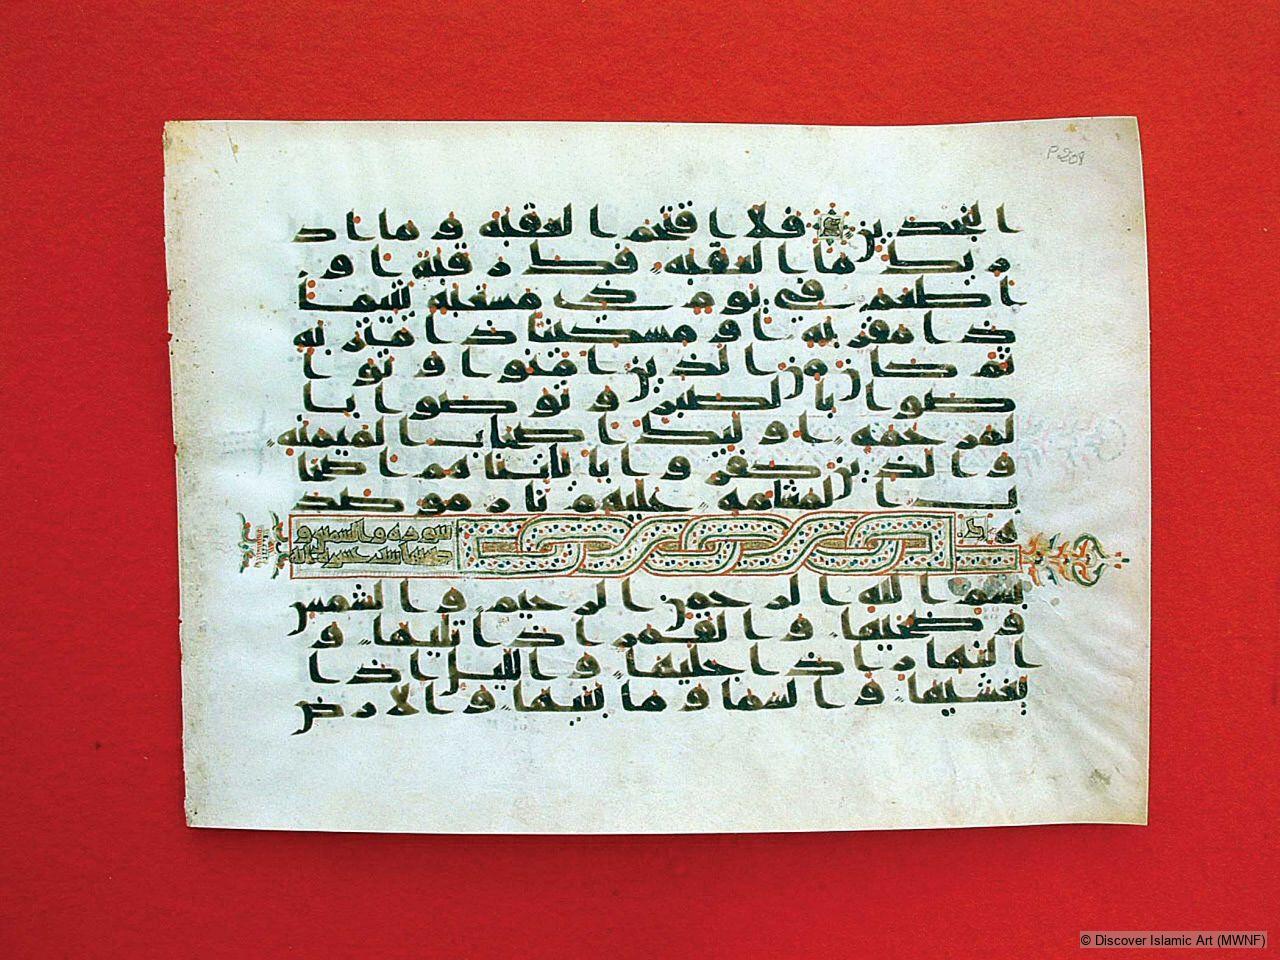 P.208
النجدين فلا اقتحم العقبة وما اد
ريك ما العقبة فك رقبة او
اطعم في يوم ذي مسغبة يتيما
ذا مقربة او مسكينا ذا متربة
ثم كان من الذين امنوا وتوا
صوا بالصبر وتواصوا با
لمرحمة اوليك اصحاب الميمنة
والذين كفروا باياتنا هم اصحا
ب المشامة عليهم نار موصد
ة
سورة والشمس و
بسم الله الرحمن الرحيم والشمس
وضحيها والقمر اذا تليها و
النهار اذا جليها واليل اذا
يغشيها والسما وما بنيها والارض
© Discover Islamic Art (MWNF)